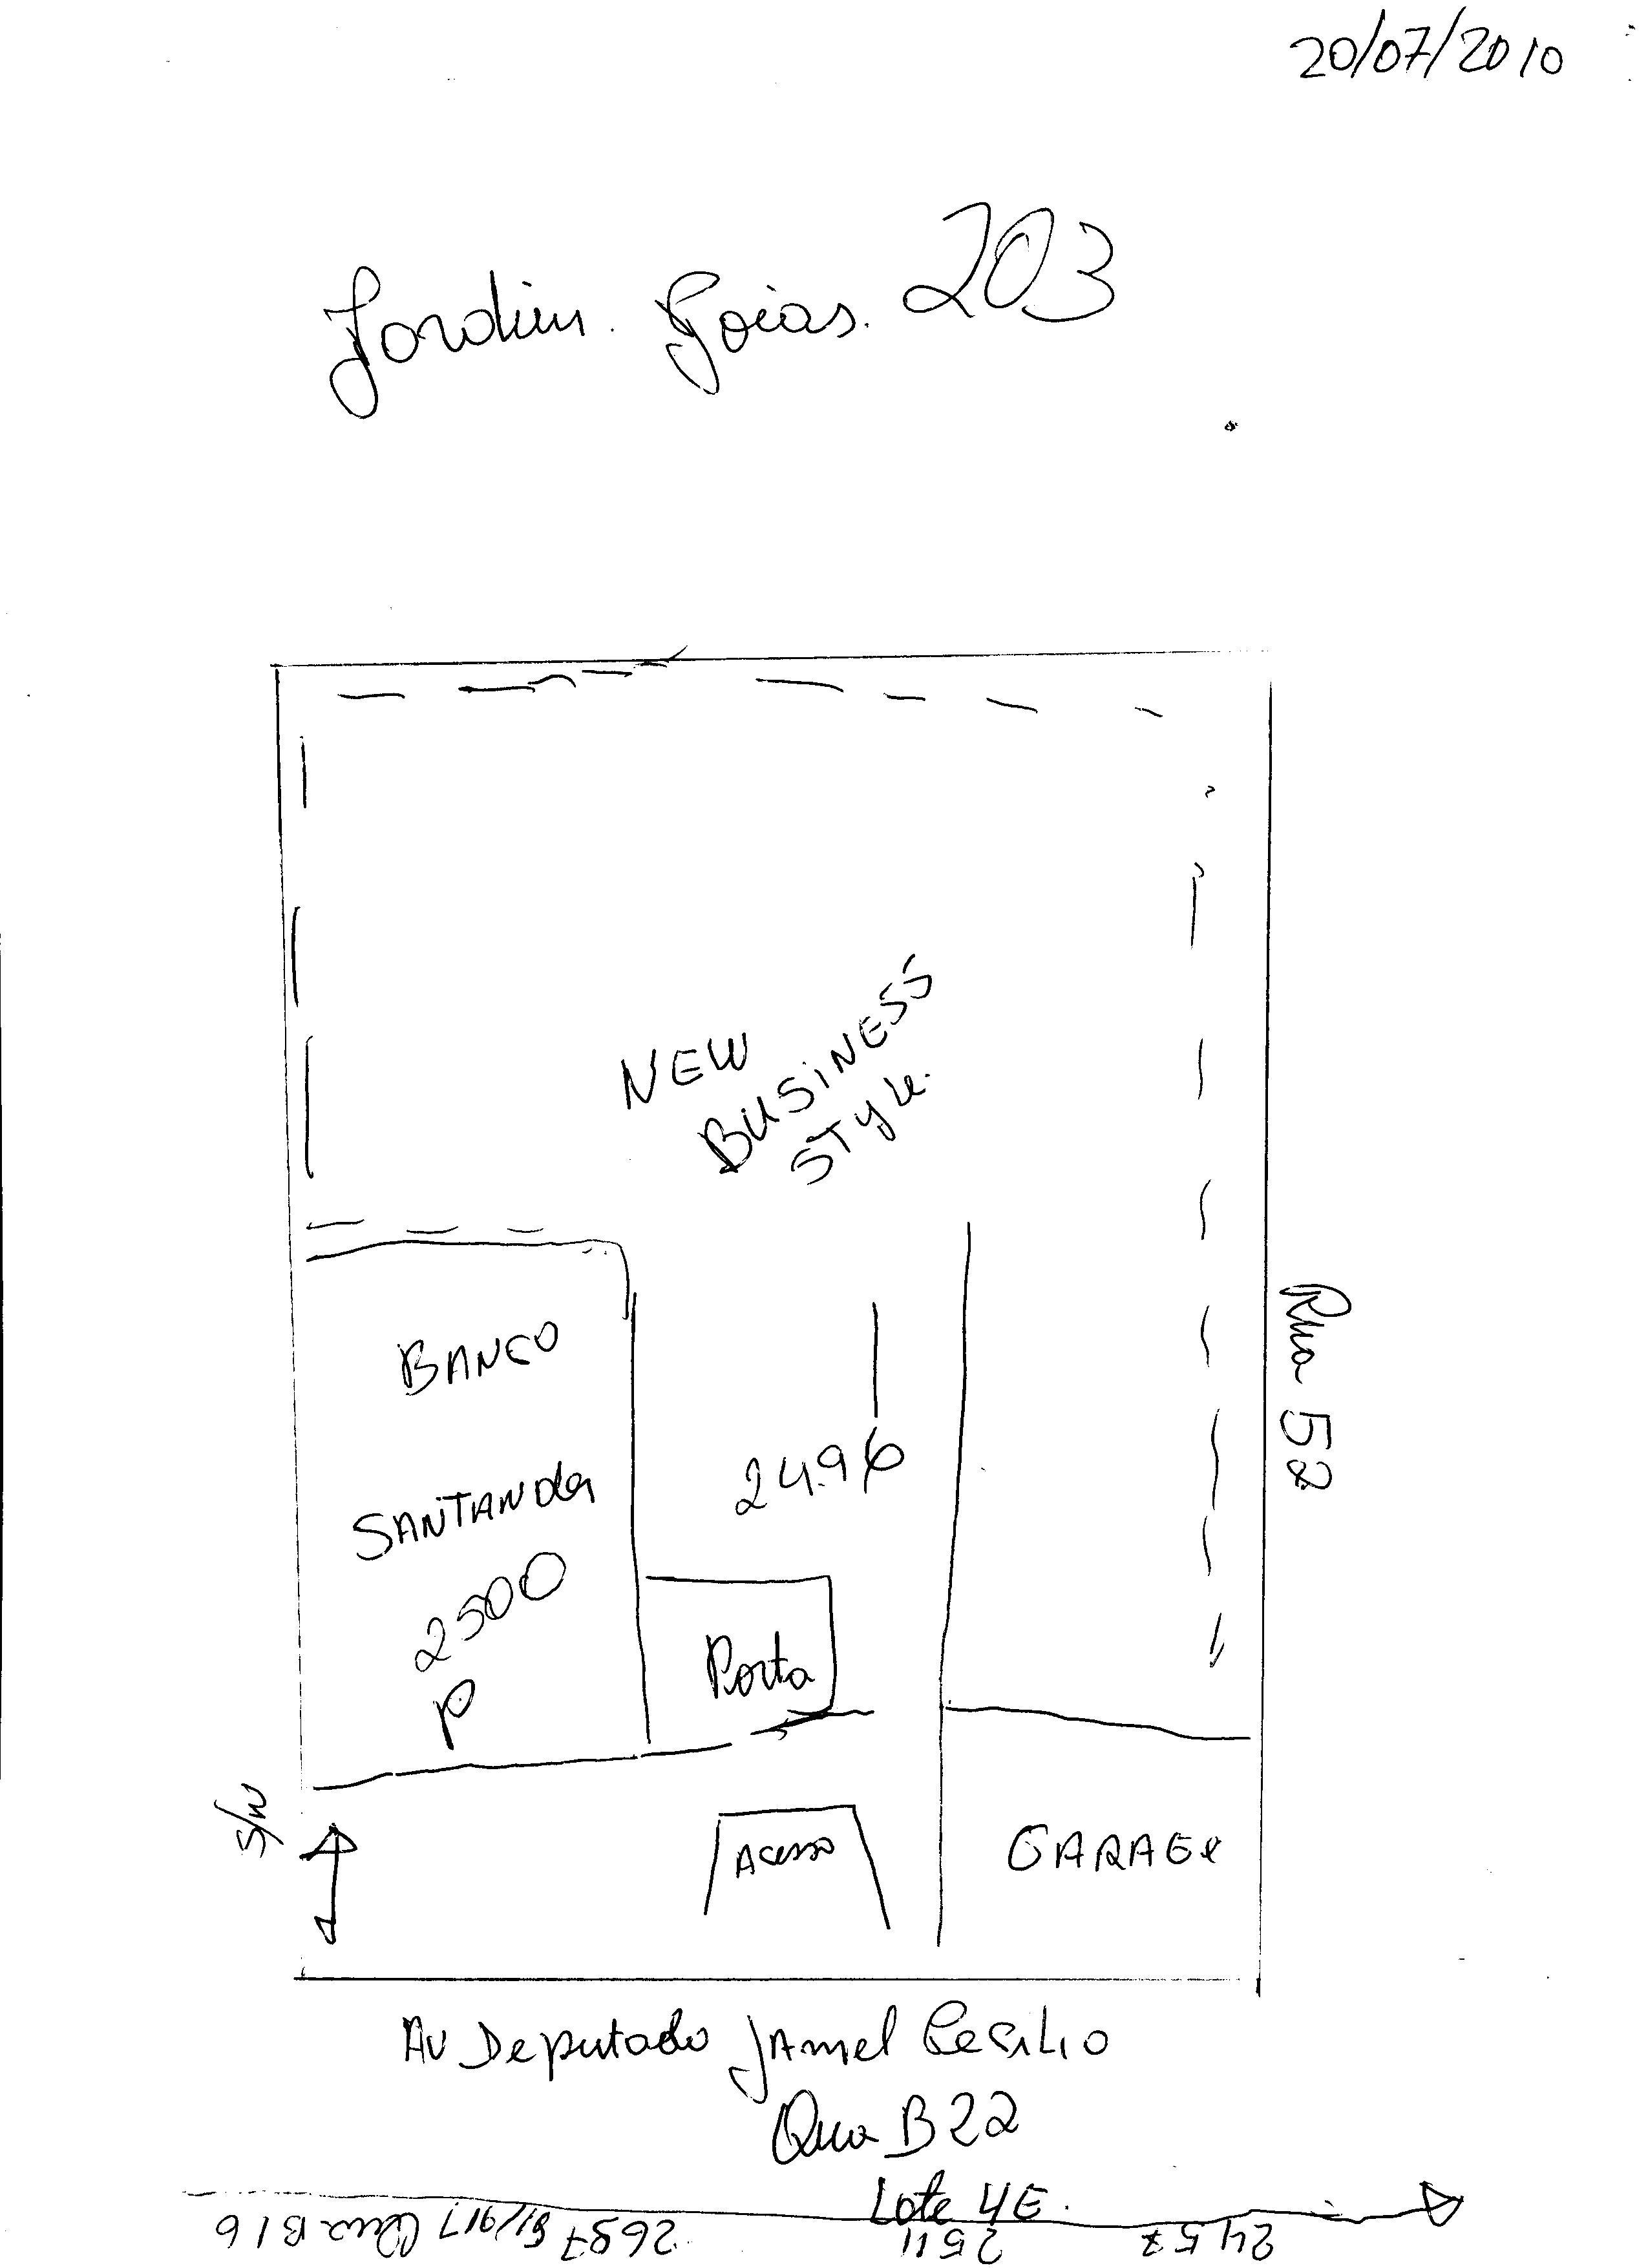 20/07/2010
Jardim. Goias. 203
NEW
BUSINESS
STyle.
BANCO
SANTANDer
2500
P
24.96
Porta
Rua 52
S/N
Acesso
GARAGe
AV Deputado JAmel CeciLio
Qua B22
Lote 4E.
2457
2511
2687
Qua B16